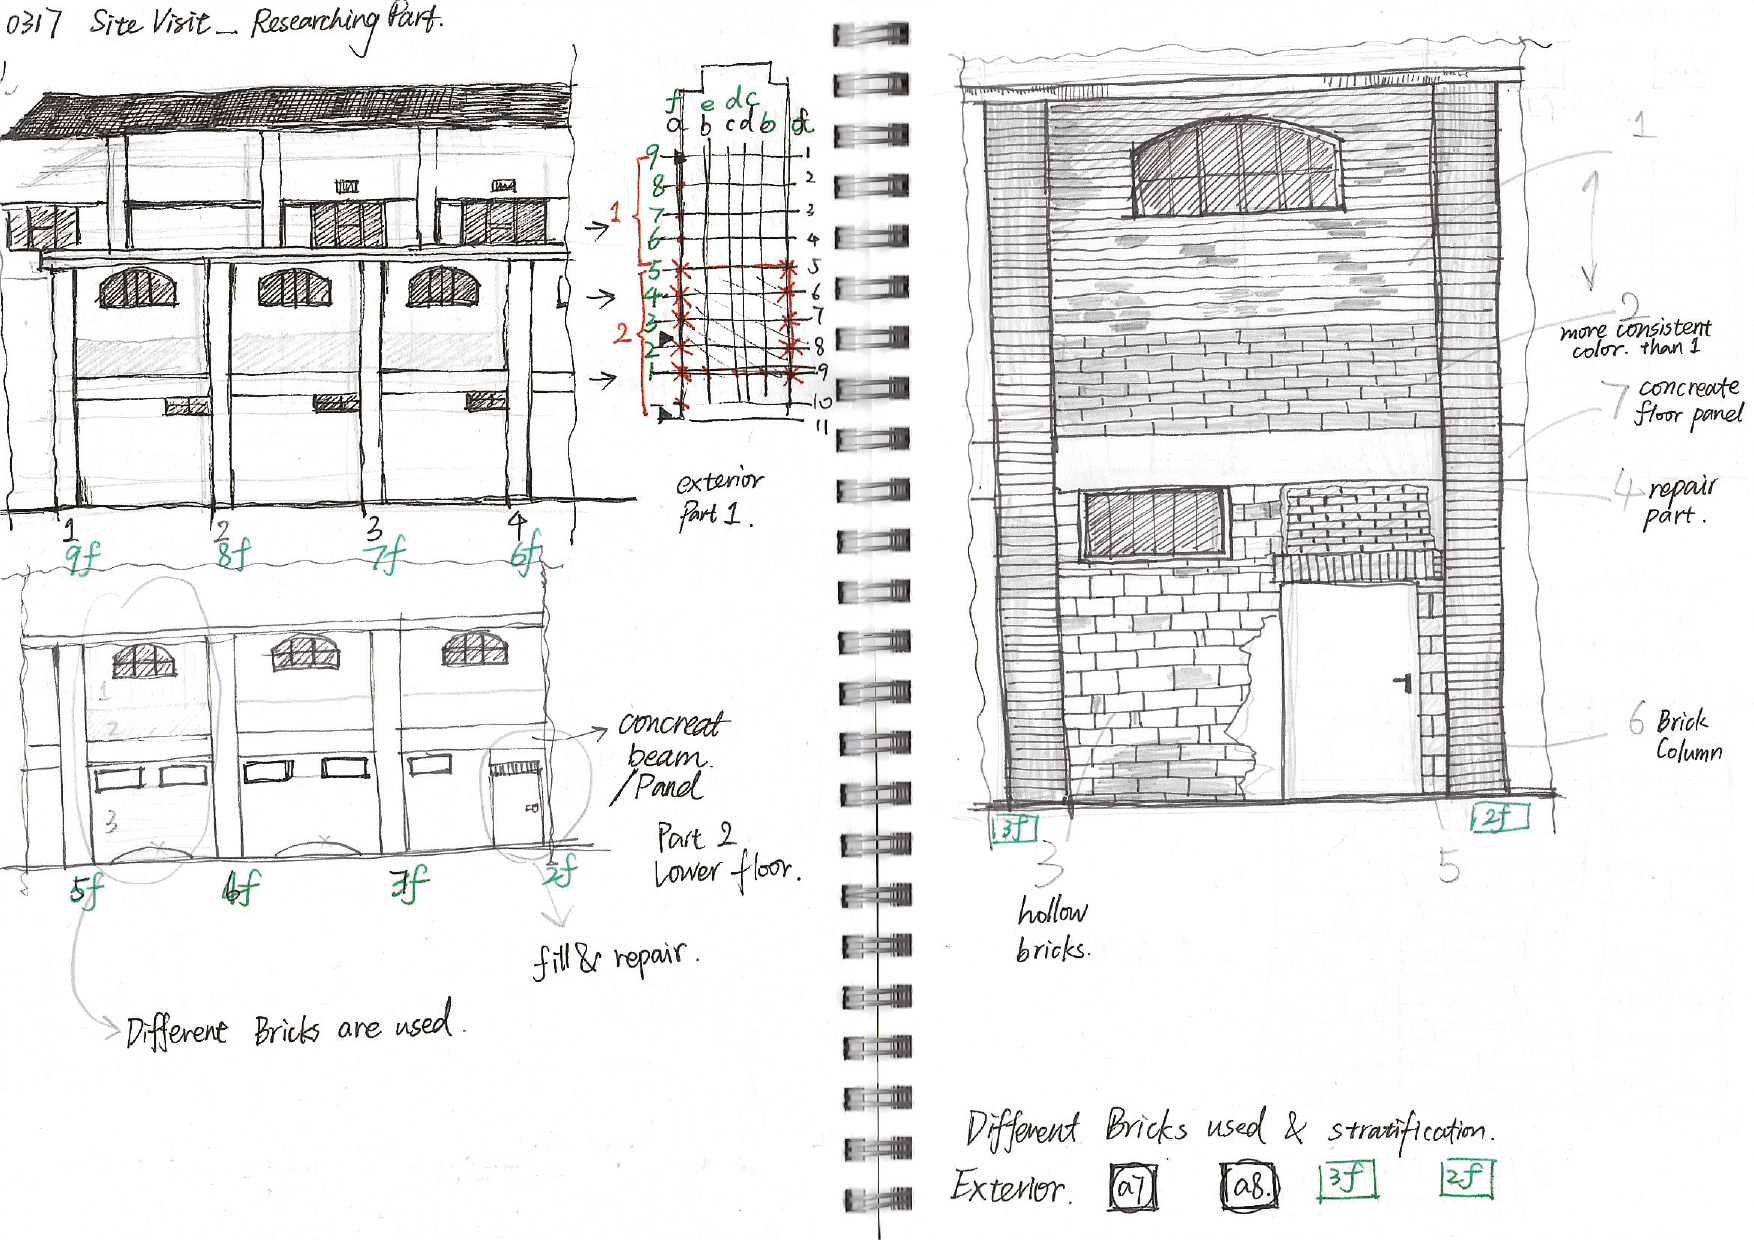 0317 Site Visit _ Researching Part.
f e d c
a b c d b a
9 1
8 2
7 3
6 4
5 5
4 6
3 7
2 8
1 9
10
11
1
2
exterior
Part 1.
1 2 3 4
9f 8f 7f 6f
1
2
3
concreat
beam.
/Panel
Part 2
Lower floor.
5f 4f 3f 2f
fill & repair.
Different Bricks are used.
1
2
more consistent
color. than 1
7 concreate
floor panel
4 repair
part.
6 Brick
Column
3f 2f
3 5
hollow
bricks.
Different Bricks used & stratification.
Exterior. a7 a8. 3f 2f